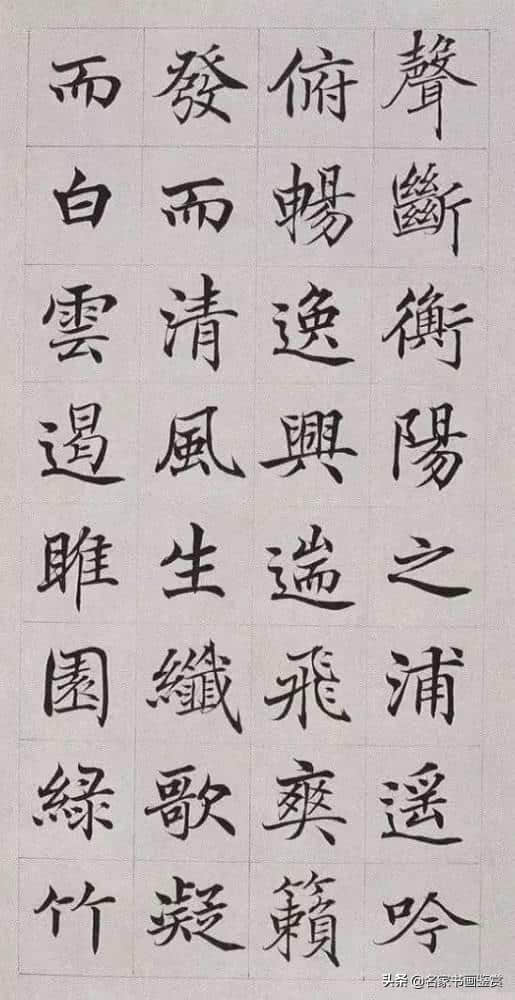 聲斷衡陽之浦遥吟
俯暢逸興遄飛爽籟
發而清風生纖歌凝
而白雲遏睢園緑竹
头条 @名家书画鉴赏